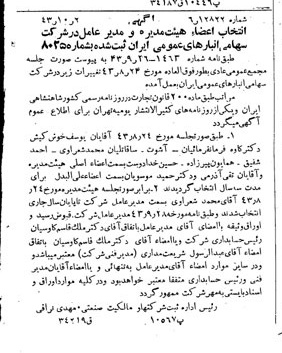 شماره ۱۲۸۲۲/ع آگهی ۲ر۱۰ر۴۳
انتخاب اعضاء هیئت‌مدیره و مدیر عامل در شرکت
سهامی انبارهای عمومی ایران ثبت‌شده بشماره ۸۰۳۵
طبق نامه شماره ۱۴۱۶–۲۶ر۹ر۴۳ به پیوست صورت جلسه
مجمع عمومی عادی بطور فوق‌العاده مورخ ۲۴ر۸ر۴۳ تغییرات زیر در شرکت
سهامی انبارهای عمومی ایران بعمل آمده
مراتب طبق ماده ۲۰۰ قانون تجارت در روزنامه رسمی کشور شاهنشاهی
ایران و یکی از روزنامه‌های کثیرالانتشار یومیه تهران برای اطلاع عموم
آگهی میگردد
۱ـ طبق صورت جلسه مورخ ۲۴ر۸ر۴۳ آقایان یوسف خوش‌کیش
دکتر کاوه فرمانفرمائیان – آشوت – ساقاتلیان محمد شعراوی – احمد
شفیق – همایون پیرزاده – حسین خداد وست بسمت اعضاء اصلی هیئت‌مدیره
وآقایان تقی آذرمی ودکتر حمید موسویان بسمت اعضاء علی‌البدل برای
مدت سه سال انتخاب گردیدند ۲ـ برابر صورت جلسه هیئت مدیره مورخ ۲۴ر
۸ر۴۳ آقای محمد شعراوی بسمت مدیر عامل شرکت تا پایان سال جاری
انتخاب شدند و طبق نامه مورخه ۲۸ر۹ر۴۳ مدیرعامل شرکت قبوض رسید و
اوراق وثیقه با امضای آقای مدیر عامل باتفاق آقای دکتر ملک قاسم کاوسیان
رئیس حسابداری شرکت و یا امضاء آقای دکتر ملک قاسم کاوسیان باتفاق
امضاء آقای عبدالرسول شریعتمداری (مدیر فنی شرکت) معتبر میباشد و
در سایر موارد امضاء آقای مدیرعامل به‌تنهائی و یا امضاء آقایان مدیر
فنی و رئیس حسابداری متفقا معتبر خواهد بود و در کلیه موارد اوراق و
اسناد بایستی به مهر شرکت ممهور گردد
رئیس اداره ثبت شرکتها و مالکیت صنعتی – مهدی نراقی
پ۱۰۵۶۷ ق۳۴۲۱۹